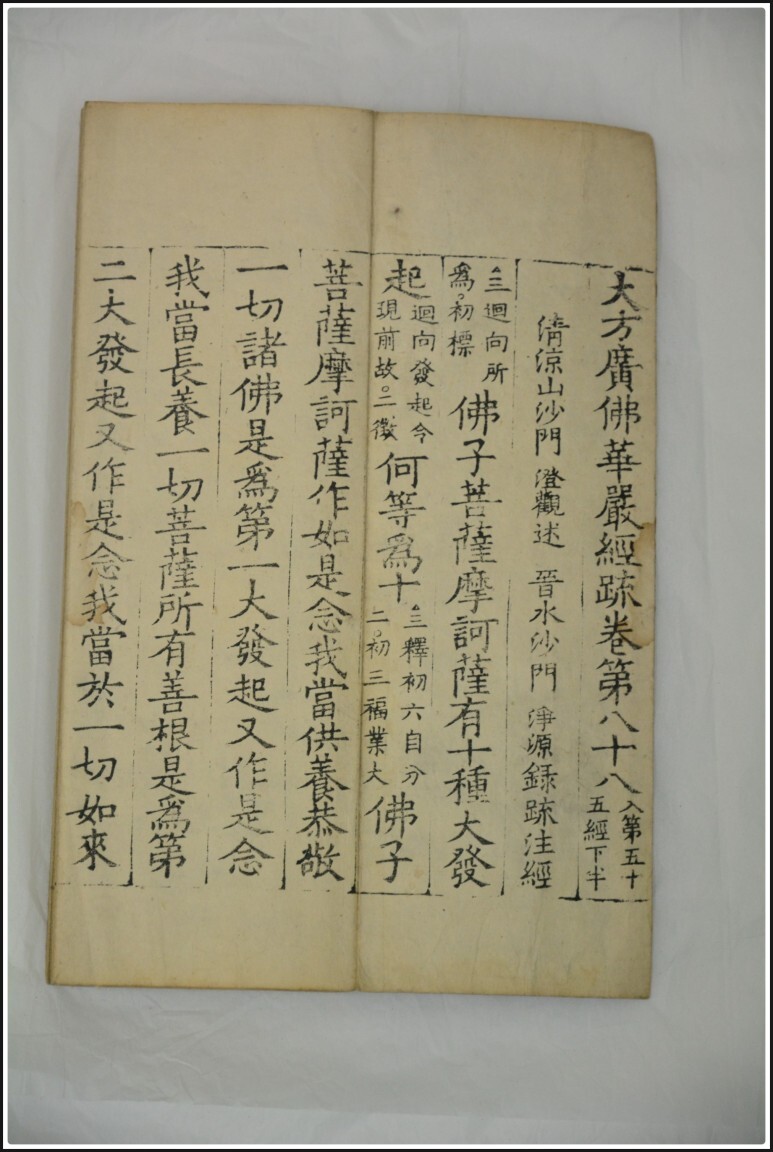 大方廣佛華嚴經疏卷第八十八入第五十五經下半
清涼山沙門 澄觀述 晉水沙門 淨源錄疏注經
三迴向所爲初標佛子菩薩摩訶薩有十種大發
起迴向發起令現前故二徵何等爲十三釋初六自分二初三福業大佛子
菩薩摩訶薩作如是念我當供養恭敬
一切諸佛是爲第一大發起又作是念
我當長養一切菩薩所有善根是爲第
二大發起又作是念我當於一切如來